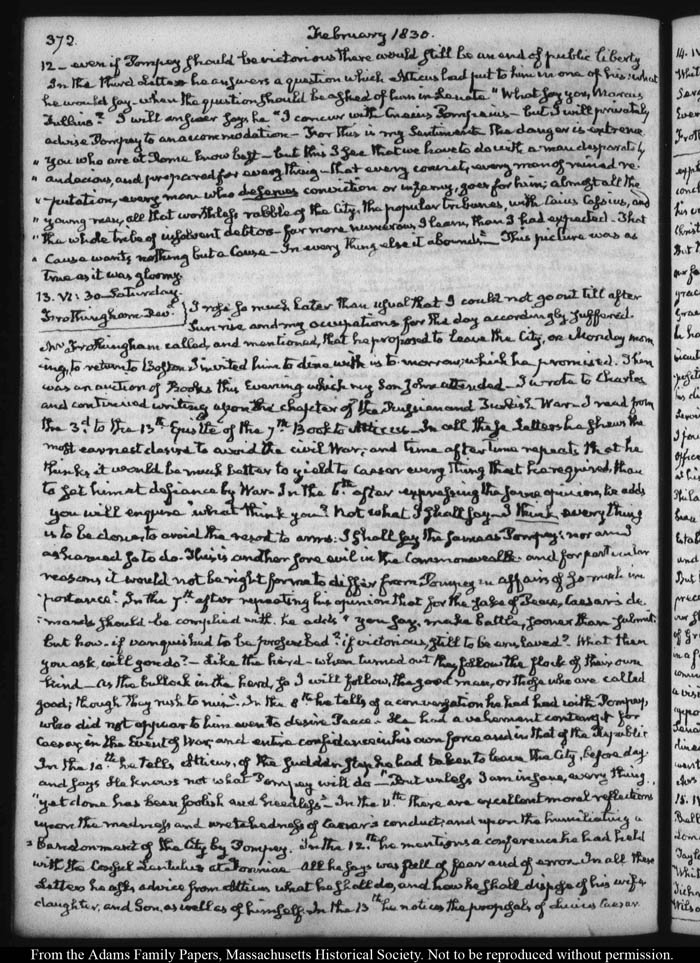 372
February 1830.
12 - even if Pompey should be victorious there would still be an end of public liberty
In the third Letter he answers a question which Atticus had put to him in one of his: what
he would say - when the question should be asked of him in Senate "What say you, Marcus
Tullius?" I will answer says he "I concur with Cnaeus Pompeius - but I will privately
advise Pompey to an accommodation - For this is my Sentiment. The danger is extreme
" You who are at Rome know best - but this I see that we have to do with a man desperately
" audacious, and prepared for every thing - that every convict, every man of ruined re-
" putation, every man who deserves conviction or infamy, goes for him; almost all the
" young men, all that worthless rabble of the City, the popular tribunes, with Caius Cassius, and
" the whole tribe of insolvent debtors - far more numerous I learn, than I had expected. That
" Cause wants nothing but a Cause - In every thing else it abounds." This picture was as
true as it was gloomy.
13. VI: 30. Saturday.
Frothingham Revd. } I rose so much later than usual that I could not go out till after
Sun rise and my occupations for the day accordingly suffered.
Mr Frothingham called, and mentioned, that he proposed to leave the City, on Monday morn-
ing, to return to Boston. I invited him to dine with us to-morrow, which he promised. There
was an auction of Books this Evening which my Son John attended - I wrote to Charles
and continued writing upon the chapter of the Russian and Turkish War - I read from
the 3.d to the 13th Epistle of the 7th Book to Atticus - In all these Letters he shews the
most earnest desire to avoid the civil War, and time after time repeats that he
thinks it would be much better to yield to Caesar every thing that he required, than
to set him at defiance by War. In the 6th after expressing the same opinion, he adds
you will enquire "what think you? Not what I shall say - I think every thing
is to be done, to avoid the resort to arms. I shall say the same as Pompey: nor am I
ashamed so to do. This is another sore evil in the Commonwealth and for particular
reasons it would not be right for me to differ from Pompey in affairs of so much im-
portance". In the 7th after repeating his opinion that for the sake of Peace, Caesar's de-
mands should be complied with. he adds "you say, make battle, sooner than submit:
but how - if vanquished to be proscribed? if victorious, still to be enslaved? What then
you ask, will you do? - Like the herd - when turned out they follow the flock of their own
kind - As the bullock in the herd, so I will follow, the good men, or those who are called
good; though they rush to ruin". In the 8th he tells of a conversation he had had with Pompey,
who did not appear to him even to desire Peace - He had a vehement contempt for
Caesar, in the Event of War, and entire confidence in his own force and in that of the Republic
In the 10th he tells Atticus, of the sudden step he had taken to leave the City, before day.
and says He knows not what Pompey will do - "But unless I am insane, every thing
"yet done has been foolish and heedless" - In the 11th there are excellent moral reflections
upon the madness and wretchedness of Caesar's conduct; and upon the humiliating a-
bandonment of the City by Pompey. In the 12th he mentions a conference he had held
with the Consul Lentulus at Formiae - All he says was full of fear and of error. In all these
Letters he asks advice from Atticus what he shall do, and how he shall dispose of his wife
daughter, and Son, as well as of himself. In the 13th he notices the proposals of Lucius Caesar
From the Adams Family Papers, Massachusetts Historical Society. Not to be reproduced without permission.